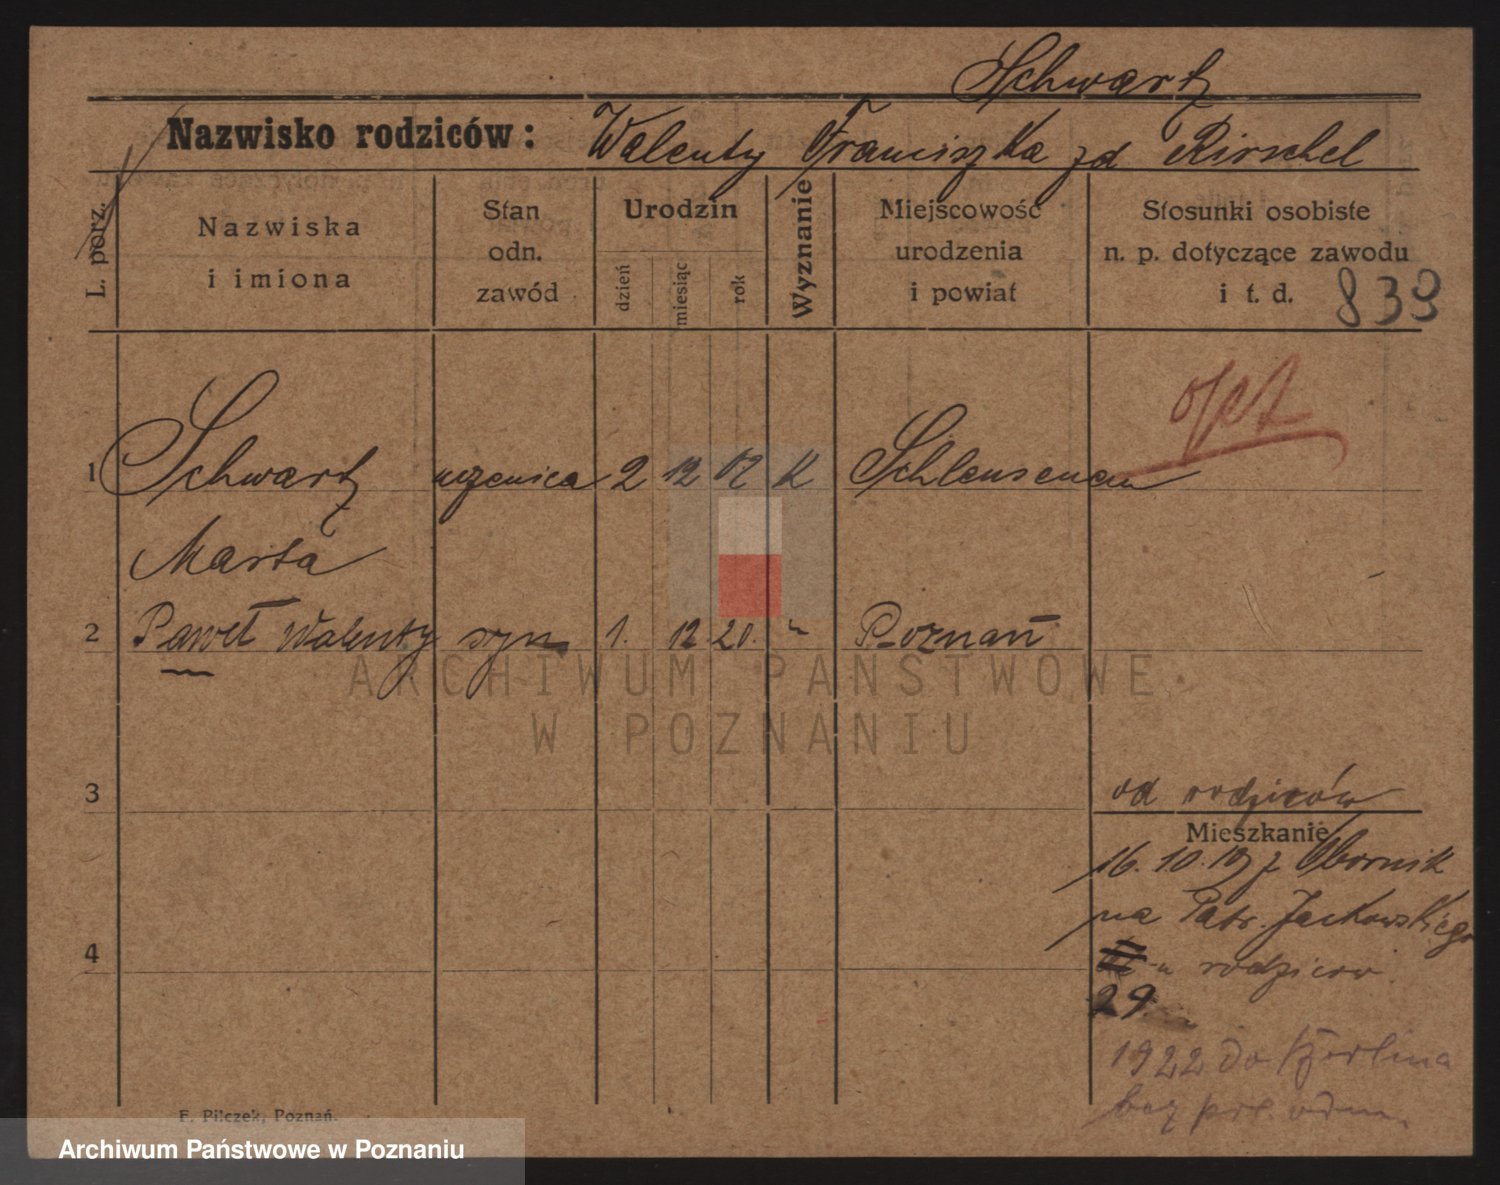 Schwartz
Nazwisko rodziców: Walenty Franciszka zd Kirschel
L. porz.
Nazwiska
i imiona
Stan
odn.
zawód
Urodzin
dzień
miesiąc
rok
Wyznanie
Miejscowość
urodzenia
i powiat
Stosunki osobiste
n. p. dotyczące zawodu
i t. d.
839
opt
1 Schwartz uczenica 2 12 07 K Schleusenau
Marta
2 Paweł Walenty syn 1. 12. 20. " Poznań
ARCHIWUM PAŃSTWOWE
W POZNANIU
3
od rodziców
Mieszkanie
16.10.19 z Obornik
na Patr. Jackowskiego
u rodziców
29
4
1922 do Berlina
bez
F. Pilczek, Poznań.
Archiwum Państwowe w Poznaniu